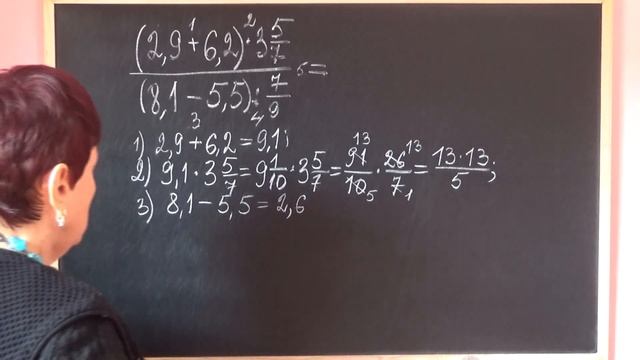 (2,9 + 6,2) · 3 5/7
(8,1 − 5,5) : 7/9 =
1) 2,9 + 6,2 = 9,1;
2) 9,1 · 3 5/7 = 9 1/10 · 3 5/7 = 91/10 · 26/7 = 13·13/5;
3) 8,1 − 5,5 = 2,6